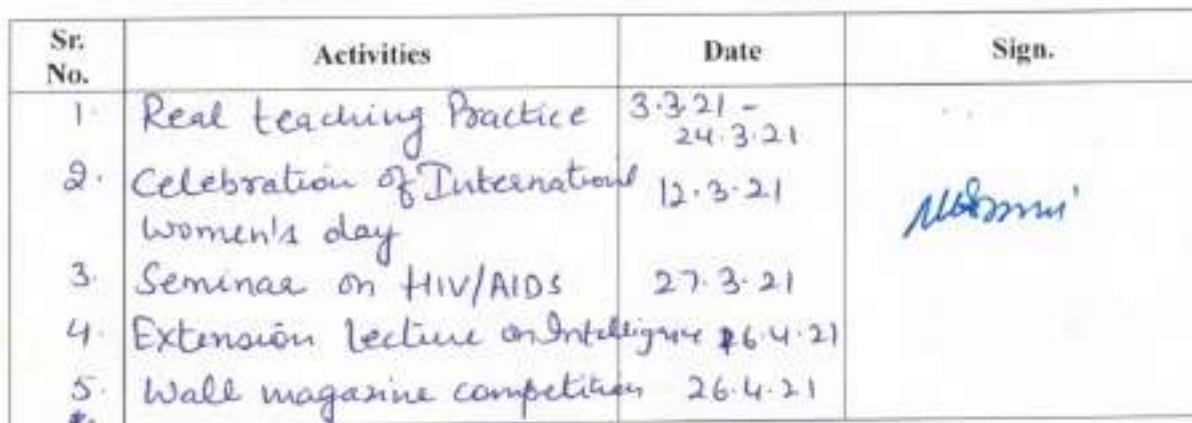 Sr. No. Activities Date Sign.
1. Real teaching Practice 3.3.21 -
24.3.21
2. Celebration of International 12.3.21
women's day
3. Seminar on HIV/AIDS 27.3.21
4. Extension lecture on Intelligence 6.4.21
5. Wall magazine competition 26.4.21